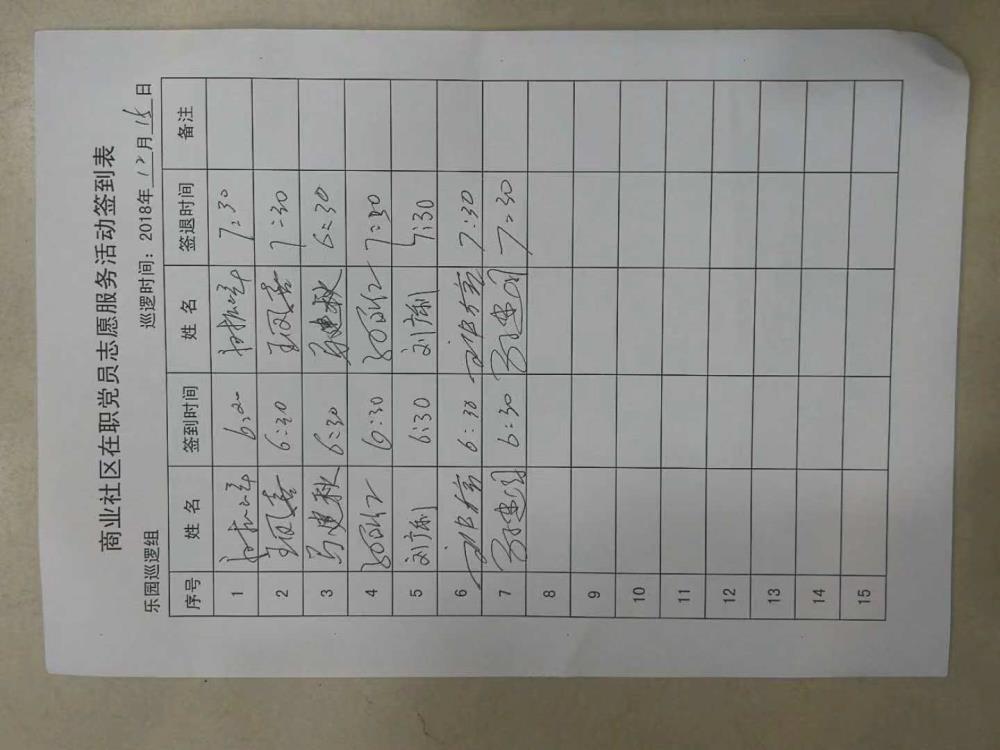 商业社区在职党员志愿服务活动签到表
乐园巡逻组 巡逻时间：2018年12月15日
序号 姓名 签到时间 姓名 签退时间 备注
1 6:20 7:30
2 王凤喜 6:30 王凤喜 7:30
3 马建秋 6:30 马建秋 6:30
4 6:30 7:30
5 刘广利 6:30 刘广利 7:30
6 6:30 7:30
7 6:30 7:30
8
9
10
11
12
13
14
15